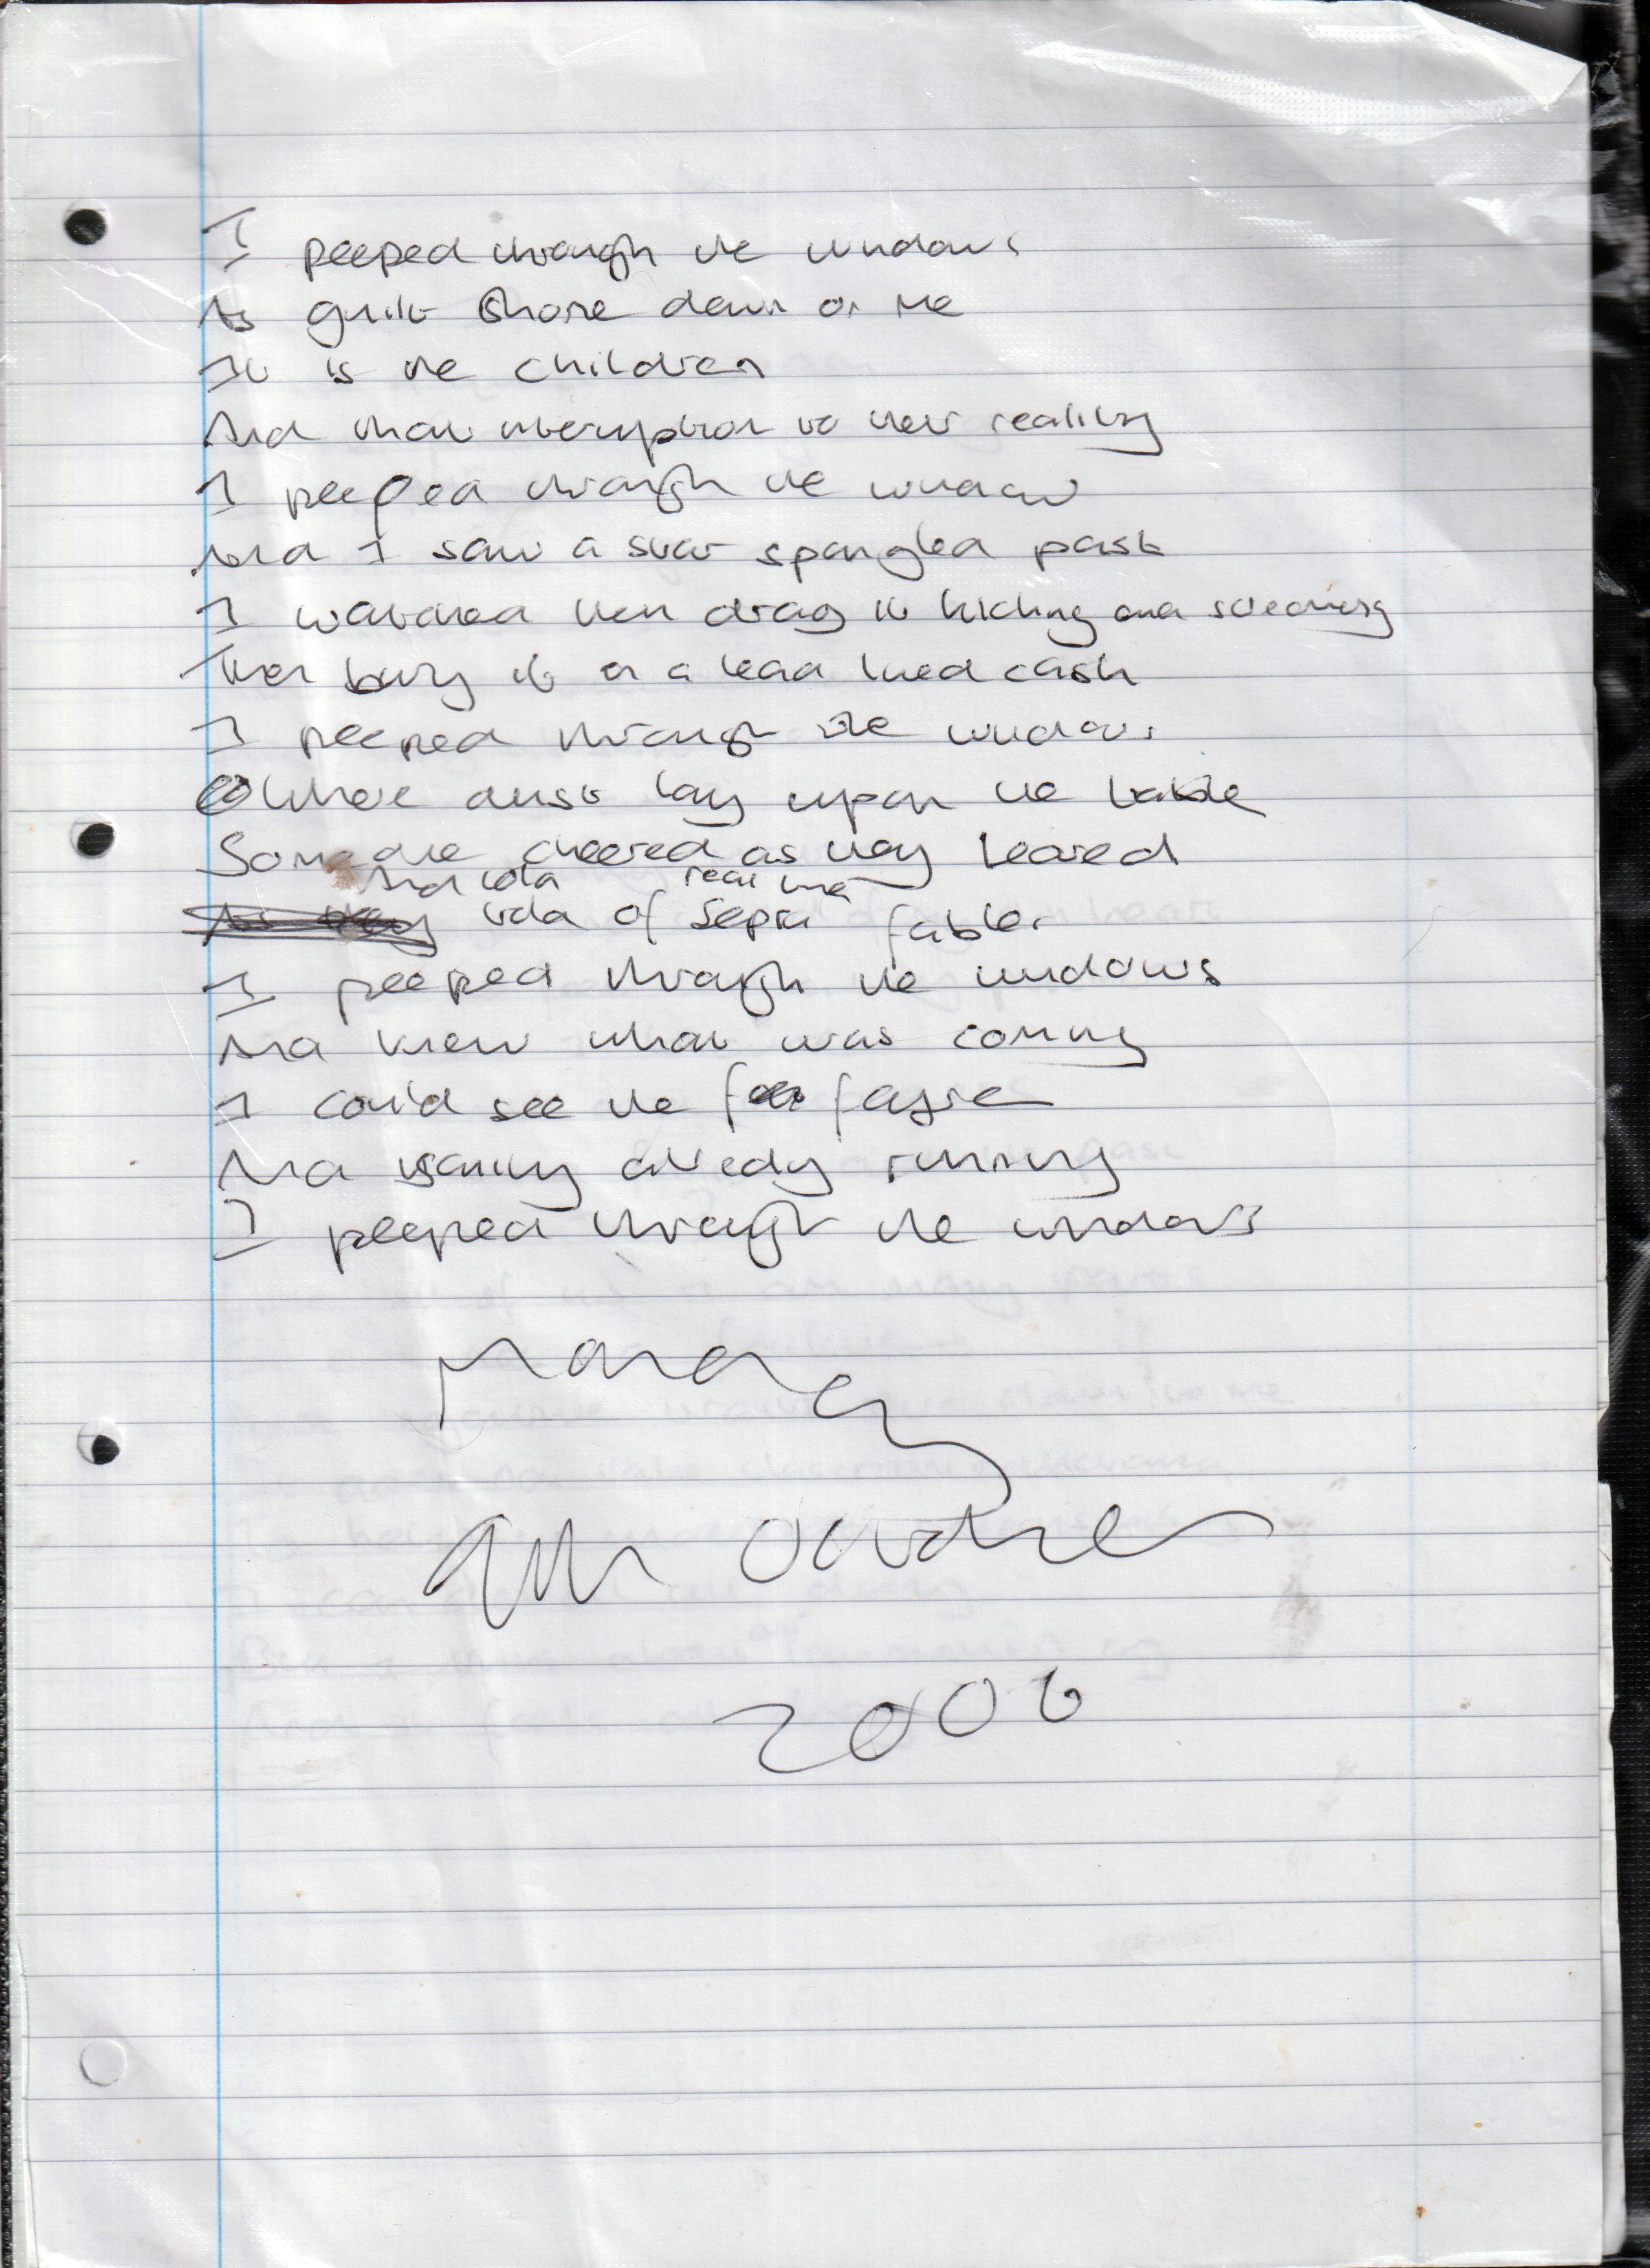 I peeped through the windows
As guilt shone down on me
It is the children
And their interruption to their reality
I peeped through the window
And I saw a star spangled past
I watched them drag it kicking and screaming
Then bury it in a lead lined cask
I peeped through the windows
Where dust lay upon the table
Someone cheered as they leared
And told real time
told of sepia fables
I peeped through the windows
And knew what was coming
I could see the future
And already running
I peeped through the windows
Monday
9th October
2006